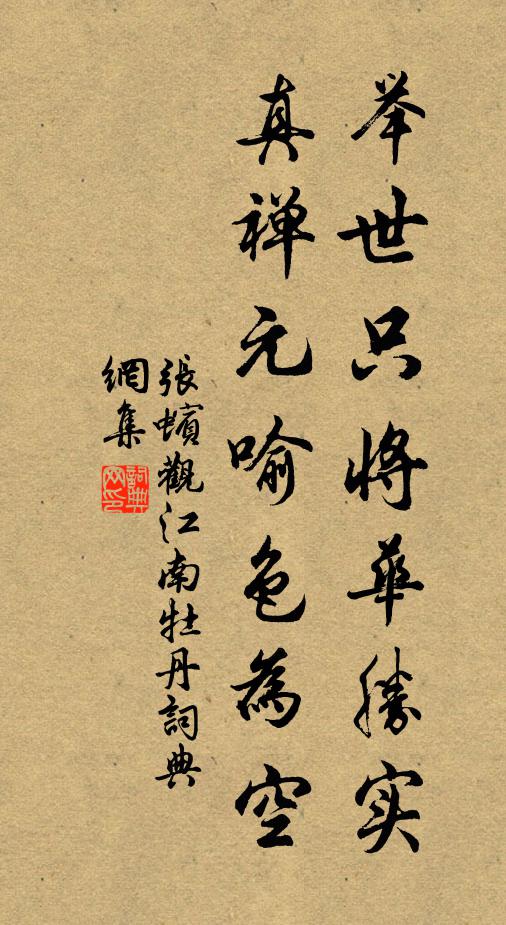 举世只将华胜实
真禅元喻色为空
張蠙觀江南牡丹詞典
網集
詞典
网印